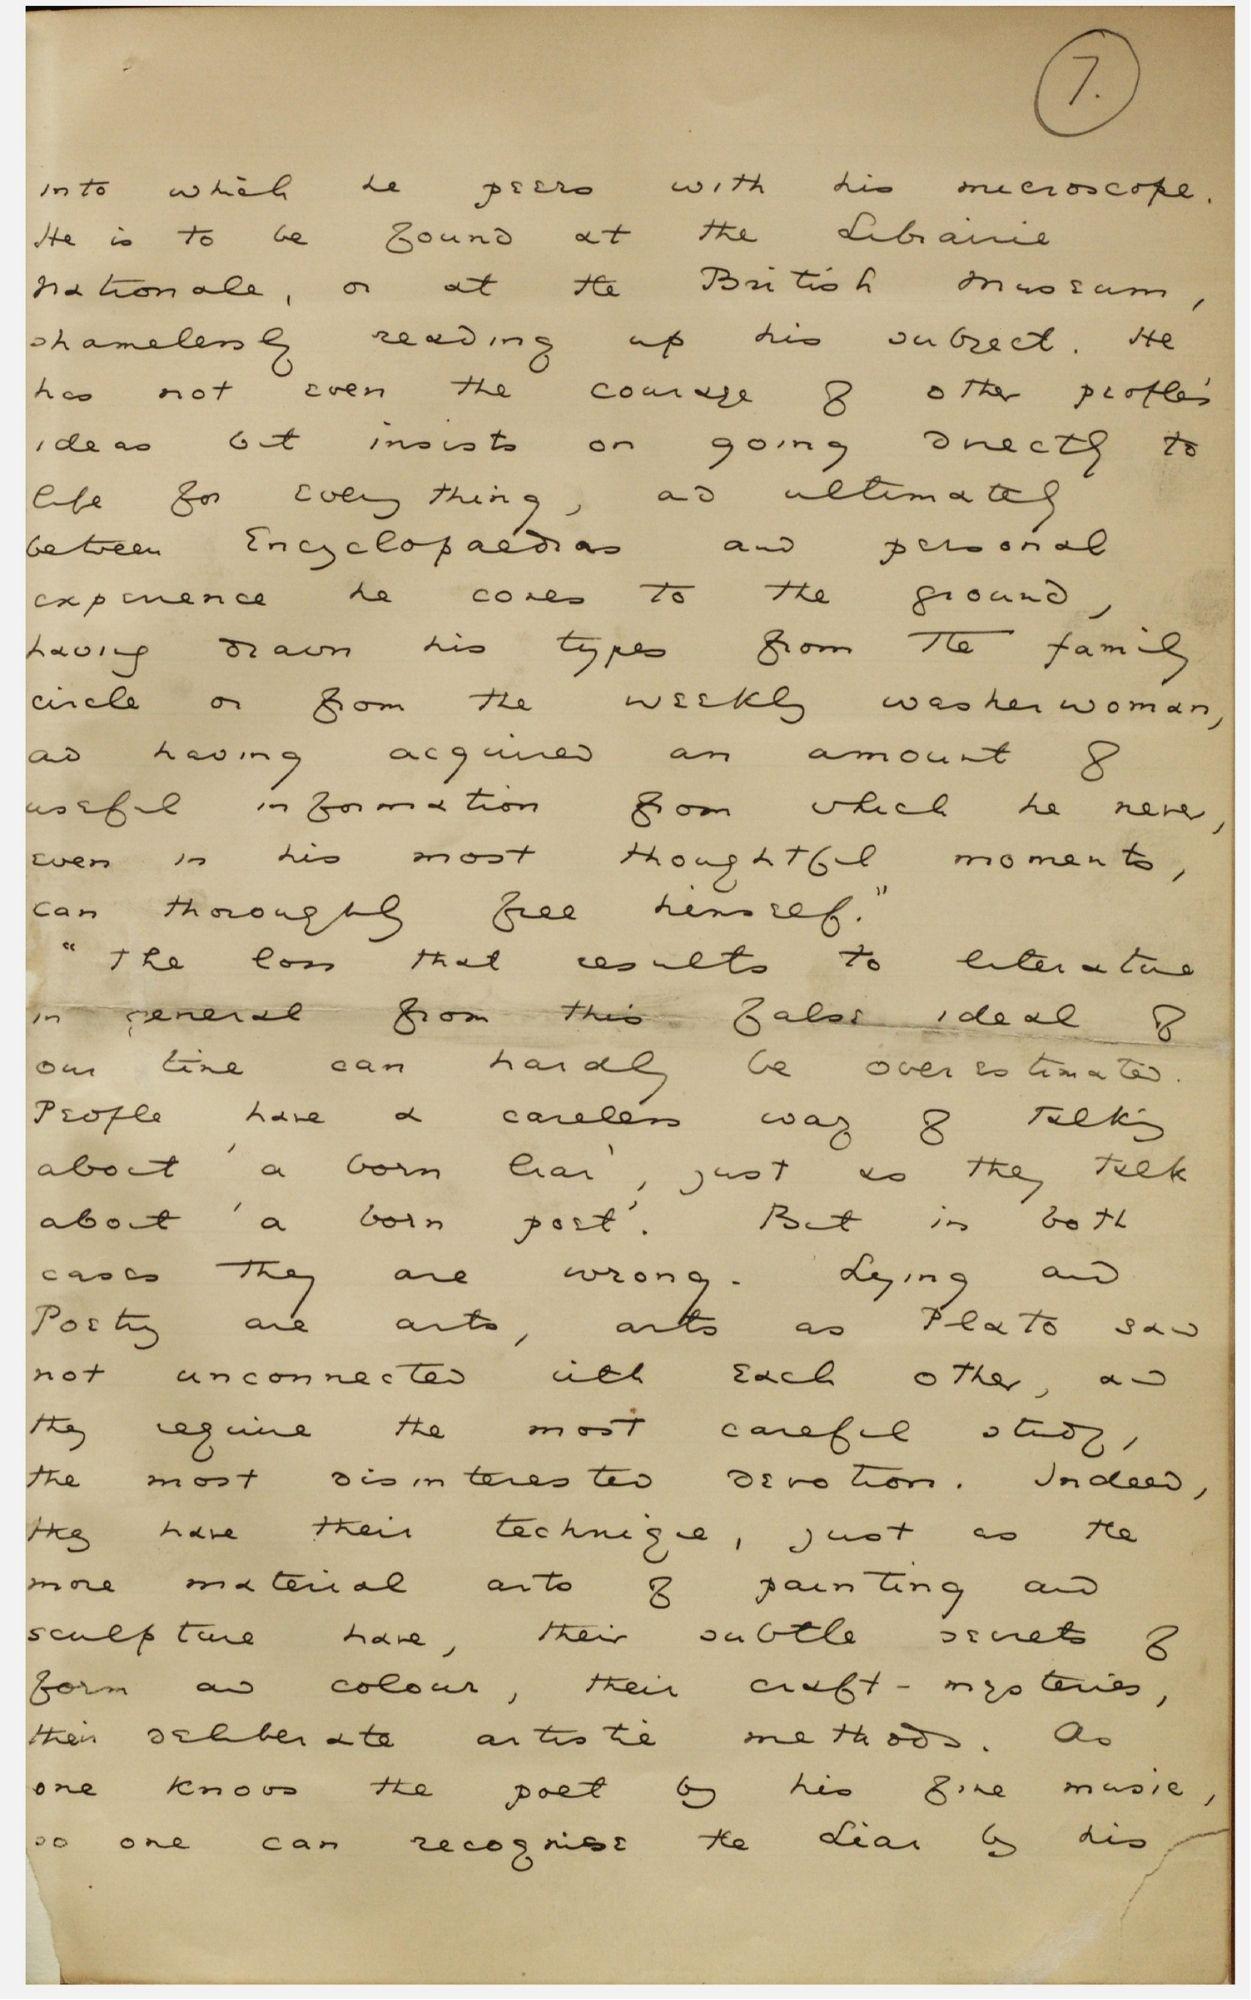 7.
into which he peers with his microscope.
He is to be found at the Librairie
Nationale, or at the British Museum,
shamelessly reading up his subject. He
has not even the courage of other people's
ideas but insists on going directly to
life for every thing, and ultimately
between Encyclopaedias and personal
experience he comes to the ground,
having drawn his types from the family
circle or from the weekly washerwoman,
and having acquired an amount of
useful information from which he never,
even in his most thoughtful moments,
can thoroughly free himself."
"The loss that results to literature
in general from this false ideal of
our time can hardly be overestimated.
People have a careless way of talking
about 'a born liar', just as they talk
about 'a born poet'. But in both
cases they are wrong. Lying and
Poetry are arts, arts as Plato saw
not unconnected with each other, and
they require the most careful study,
the most disinterested devotion. Indeed,
they have their technique, just as the
more material arts of painting and
sculpture have, their subtle secrets of
form and colour, their craft-mysteries,
their deliberate artistic methods. As
one knows the poet by his fine music,
so one can recognise the Liar by his